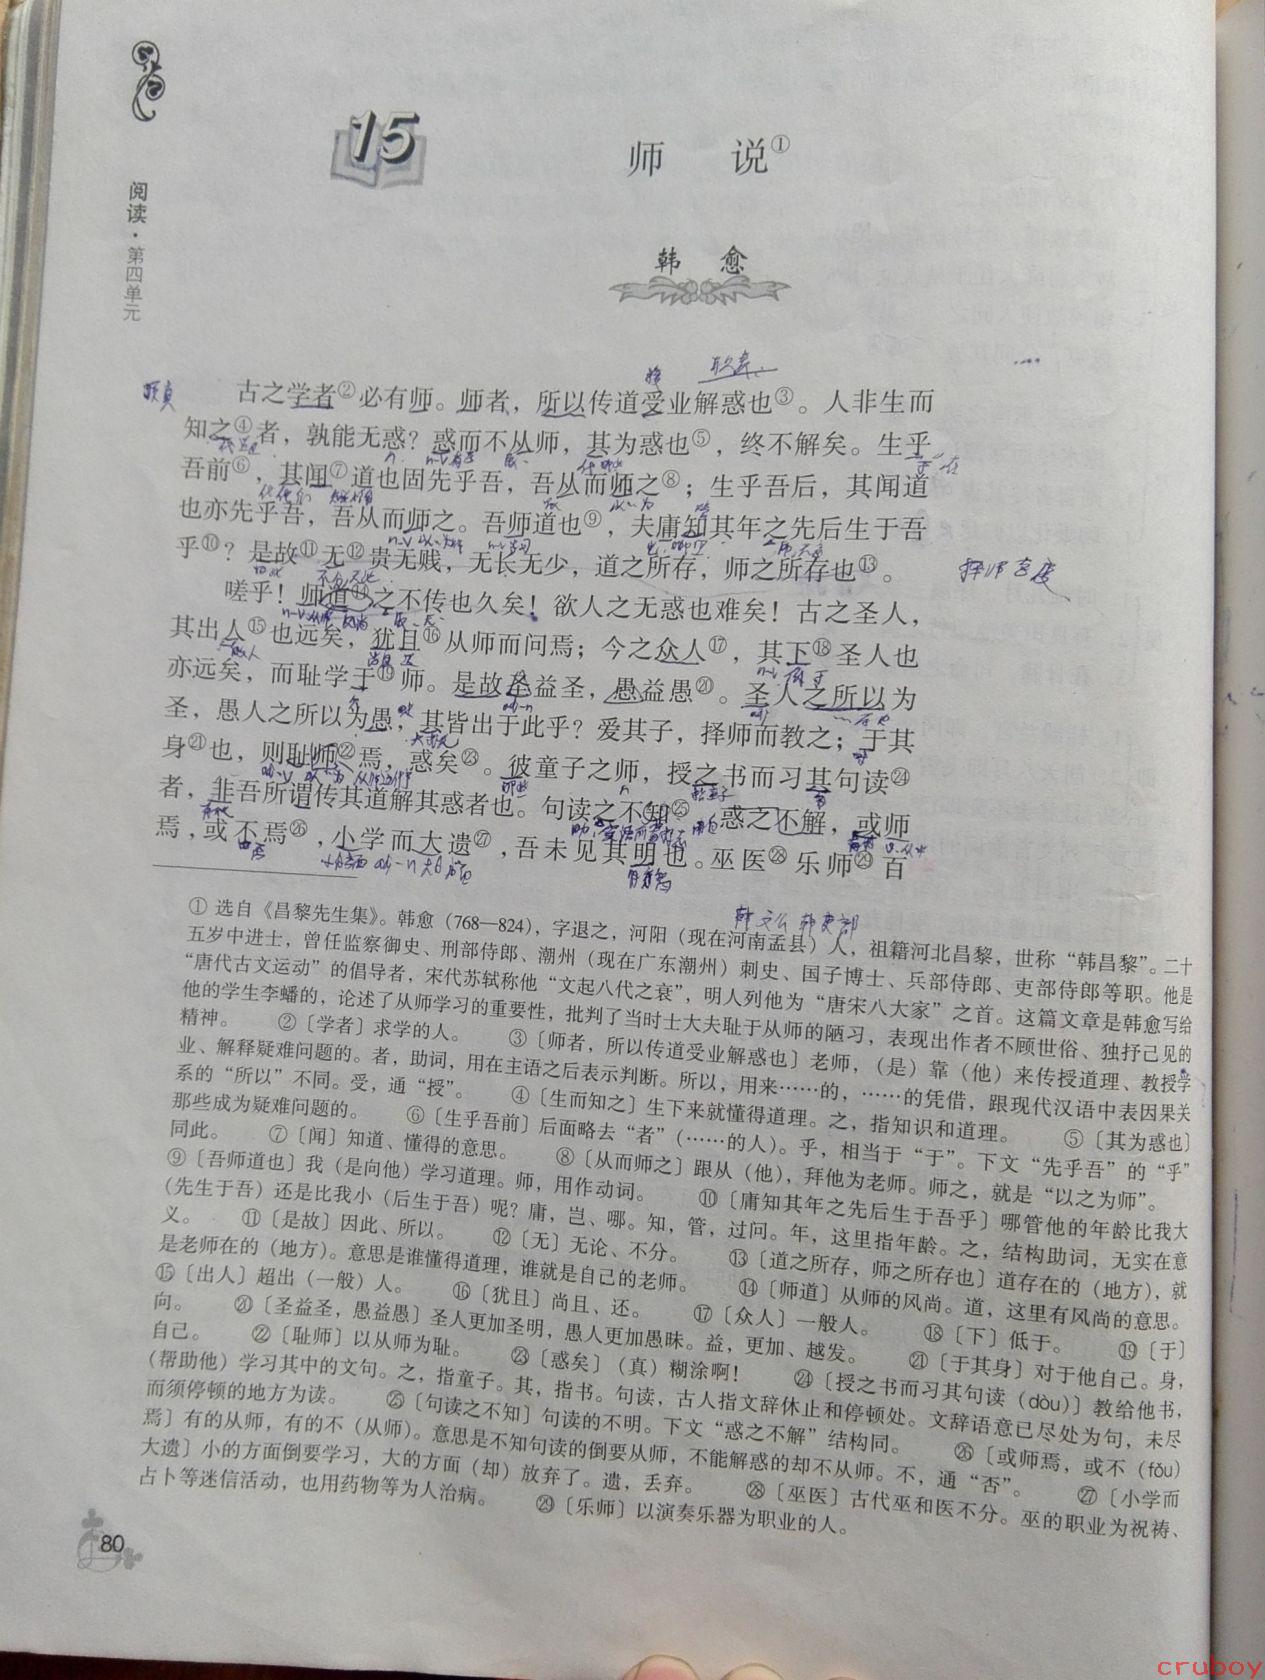 阅读·第四单元
15
师 说①
韩 愈
职责
顶真
古之学者②必有师。师者，所以传道受业解惑也③。人非生而
知之④者，孰能无惑？惑而不从师，其为惑也⑤，终不解矣。生乎
吾前⑥，其闻⑦道也固先乎吾，吾从而师之⑧；生乎吾后，其闻道
也亦先乎吾，吾从而师之。吾师道也⑨，夫庸知其年之先后生于吾
乎⑩？是故⑪无⑫贵无贱，无长无少，道之所存，师之所存也⑬。
择师态度
嗟乎！师道⑭之不传也久矣！欲人之无惑也难矣！古之圣人，
其出人⑮也远矣，犹且⑯从师而问焉；今之众人⑰，其下⑱圣人也
亦远矣，而耻学于⑲师。是故圣益圣，愚益愚⑳。圣人之所以为
圣，愚人之所以为愚，其皆出于此乎？爱其子，择师而教之；于其
身㉑也，则耻师㉒焉，惑矣㉓。彼童子之师，授之书而习其句读㉔
者，非吾所谓传其道解其惑者也。句读之不知㉕，惑之不解，或师
焉，或不焉㉖，小学而大遗㉗，吾未见其明也。巫医㉘乐师㉙百
韩文公 韩吏部
① 选自《昌黎先生集》。韩愈（768—824），字退之，河阳（现在河南孟县）人，祖籍河北昌黎，世称“韩昌黎”。二十
五岁中进士，曾任监察御史、刑部侍郎、潮州（现在广东潮州）刺史、国子博士、兵部侍郎、吏部侍郎等职。他是
“唐代古文运动”的倡导者，宋代苏轼称他“文起八代之衰”，明人列他为“唐宋八大家”之首。这篇文章是韩愈写给
他的学生李蟠的，论述了从师学习的重要性，批判了当时士大夫耻于从师的陋习，表现出作者不顾世俗、独抒己见的
精神。 ②〔学者〕求学的人。 ③〔师者，所以传道受业解惑也〕老师，（是）靠（他）来传授道理、教授学
业、解释疑难问题的。者，助词，用在主语之后表示判断。所以，用来……的，……的凭借，跟现代汉语中表因果关
系的“所以”不同。受，通“授”。 ④〔生而知之〕生下来就懂得道理。之，指知识和道理。 ⑤〔其为惑也〕
那些成为疑难问题的。 ⑥〔生乎吾前〕后面略去“者”（……的人）。乎，相当于“于”。下文“先乎吾”的“乎”
同此。 ⑦〔闻〕知道、懂得的意思。 ⑧〔从而师之〕跟从（他），拜他为老师。师之，就是“以之为师”。
⑨〔吾师道也〕我（是向他）学习道理。师，用作动词。 ⑩〔庸知其年之先后生于吾乎〕哪管他的年龄比我大
（先生于吾）还是比我小（后生于吾）呢？庸，岂、哪。知，管，过问。年，这里指年龄。之，结构助词，无实在意
义。 ⑪〔是故〕因此、所以。 ⑫〔无〕无论、不分。 ⑬〔道之所存，师之所存也〕道存在的（地方），就
是老师在的（地方）。意思是谁懂得道理，谁就是自己的老师。 ⑭〔师道〕从师的风尚。道，这里有风尚的意思。
⑮〔出人〕超出（一般）人。 ⑯〔犹且〕尚且、还。 ⑰〔众人〕一般人。 ⑱〔下〕低于。 ⑲〔于〕
向。 ⑳〔圣益圣，愚益愚〕圣人更加圣明，愚人更加愚昧。益，更加、越发。 ㉑〔于其身〕对于他自己。身，
自己。 ㉒〔耻师〕以从师为耻。 ㉓〔惑矣〕（真）糊涂啊！ ㉔〔授之书而习其句读（dòu）〕教给他书，
（帮助他）学习其中的文句。之，指童子。其，指书。句读，古人指文辞休止和停顿处。文辞语意已尽处为句，未尽
而须停顿的地方为读。 ㉕〔句读之不知〕句读的不明。下文“惑之不解”结构同。 ㉖〔或师焉，或不（fǒu）
焉〕有的从师，有的不（从师）。意思是不知句读的倒要从师，不能解惑的却不从师。不，通“否”。 ㉗〔小学而
大遗〕小的方面倒要学习，大的方面（却）放弃了。遗，丢弃。 ㉘〔巫医〕古代巫和医不分。巫的职业为祝祷、
占卜等迷信活动，也用药物等为人治病。 ㉙〔乐师〕以演奏乐器为职业的人。
80
cruboy